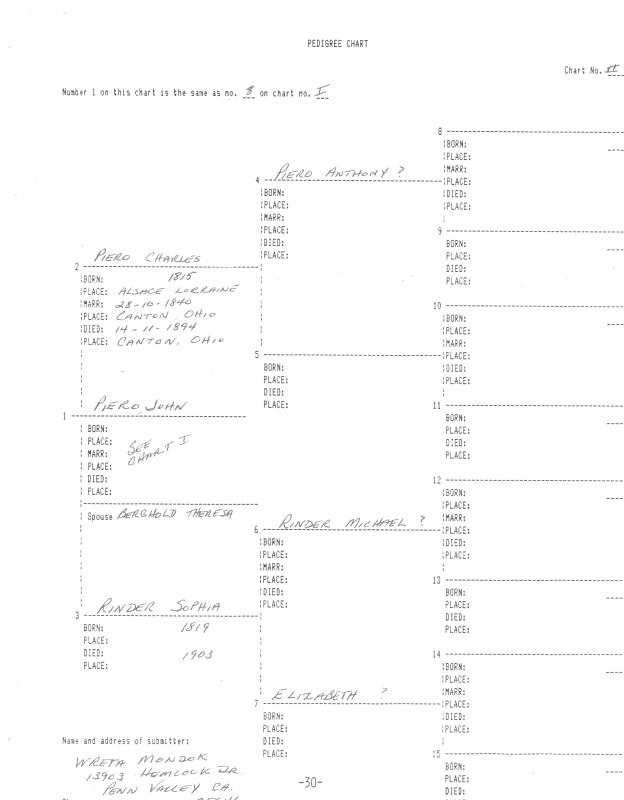 PEDIGREE CHART
Chart No. II
Number 1 on this chart is the same as no. 8 on chart no. I
8
BORN:
PLACE:
MARR:
PLACE:
DIED:
PLACE:
4 PIERO ANTHONY ?
BORN:
PLACE:
MARR:
PLACE:
DIED:
PLACE:
9
BORN:
PLACE:
DIED:
PLACE:
2 PIERO CHARLES
BORN: 1815
PLACE: ALSACE LORRAINE
MARR: 28-10-1840
PLACE: CANTON, OHIO
DIED: 14-11-1894
PLACE: CANTON, OHIO
10
BORN:
PLACE:
MARR:
PLACE:
DIED:
PLACE:
5
BORN:
PLACE:
DIED:
PLACE:
11
BORN:
PLACE:
DIED:
PLACE:
1 PIERO, JOHN
BORN:
PLACE:
MARR:
PLACE:
DIED:
PLACE:
SEE
CHART I
Spouse BERGHOLD THERESA
12
BORN:
PLACE:
MARR:
PLACE:
DIED:
PLACE:
6 RINDER MICHAEL ?
BORN:
PLACE:
MARR:
PLACE:
DIED:
PLACE:
13
BORN:
PLACE:
DIED:
PLACE:
3 RINDER SOPHIA
BORN: 1819
PLACE:
DIED: 1903
PLACE:
14
BORN:
PLACE:
MARR:
PLACE:
DIED:
PLACE:
7 ELIZABETH ?
BORN:
PLACE:
DIED:
PLACE:
15
BORN:
PLACE:
DIED:
Name and address of submitter:
WRETA MONDOK
13903 HEMLOCK DR.
PENN VALLEY CA.
-30-